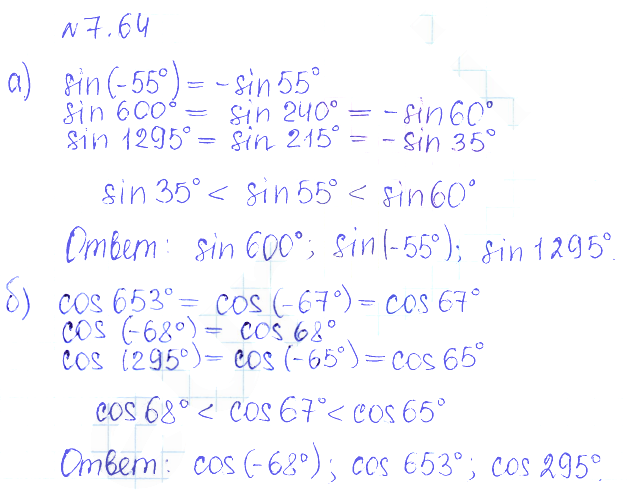 №7.64
а) sin(-55°) = -sin55°
sin 600° = sin 240° = -sin60°
sin 1295° = sin 215° = -sin 35°
sin35° < sin55° < sin60°
Ответ: sin 600°; sin(-55°); sin1295°.
б) cos 653° = cos (-67°) = cos 67°
cos (-68°) = cos 68°
cos (295°) = cos (-65°) = cos 65°
cos68° < cos67° < cos65°
Ответ: cos(-68°); cos 653°; cos 295°.